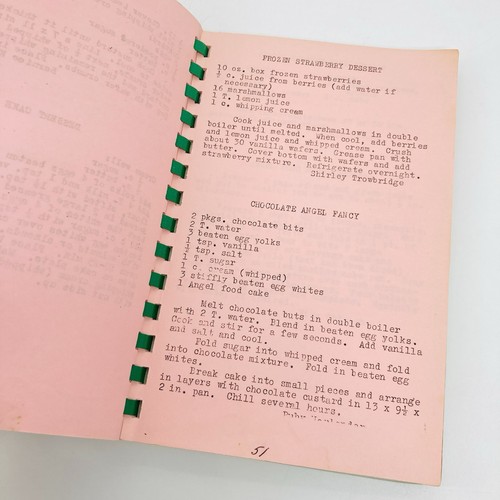 FROZEN STRAWBERRY DESSERT
10 oz. box frozen strawberries
½ c. juice from berries (add water if
necessary)
16 marshmallows
1 T. lemon juice
1 c. whipping cream
Cook juice and marshmallows in double
boiler until melted. When cool, add berries
and lemon juice and whipped cream. Crush
about 30 vanilla wafers. Grease pan with
butter. Cover bottom with wafers and add
strawberry mixture. Refrigerate overnight.
Shirley Trowbridge
CHOCOLATE ANGEL FANCY
2 pkgs. chocolate bits
2 T. water
3 beaten egg yolks
1 tsp. vanilla
½ tsp. salt
1 T. sugar
1 c. cream (whipped)
3 stiffly beaten egg whites
1 Angel food cake
Melt chocolate buts in double boiler
with 2 T. water. Blend in beaten egg yolks.
Cook and stir for a few seconds. Add vanilla
and salt and cool.
Fold sugar into whipped cream and fold
into chocolate mixture. Fold in beaten egg
whites.
Break cake into small pieces and arrange
in layers with chocolate custard in 13 x 9½ x
2 in. pan. Chill several hours.
Ruby
51